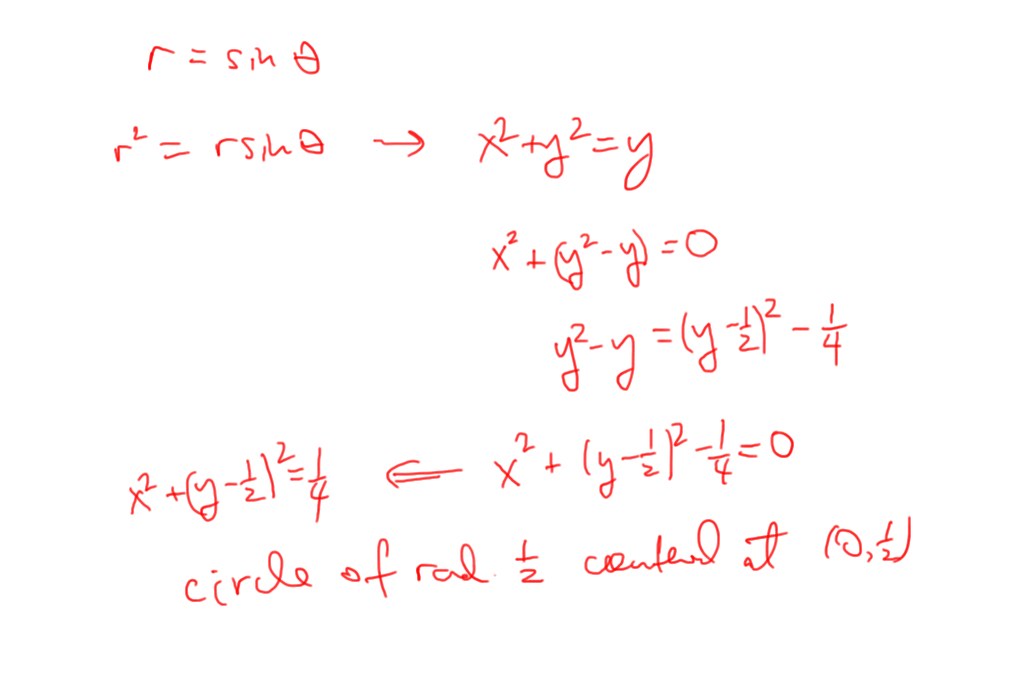 r = sin θ
r² = r sin θ → x² + y² = y
x² + (y² - y) = 0
y² - y = (y - 1/2)² - 1/4
x² + (y - 1/2)² = 1/4 ⇐ x² + (y - 1/2)² - 1/4 = 0
circle of rad. 1/2 centered at (0, 1/2)